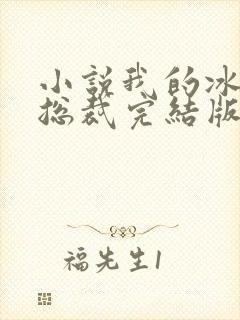 小説我的冰
总裁完結版
福先生1